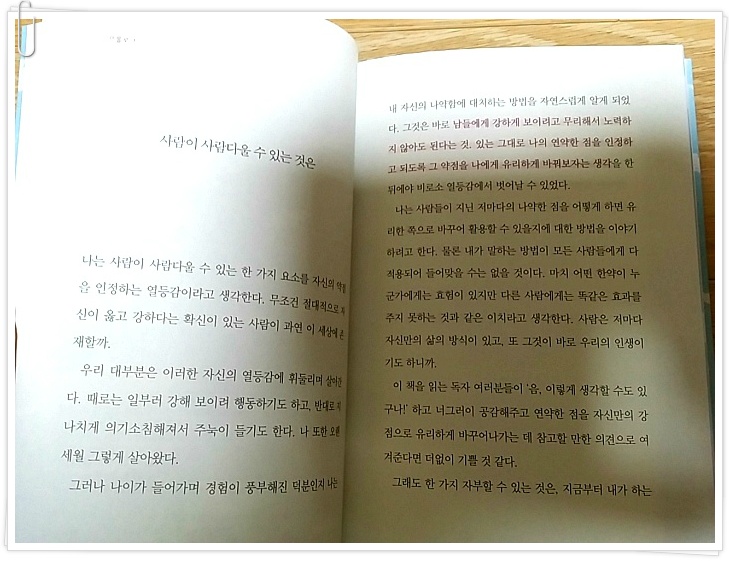 사람이 사람다울 수 있는 것은
나는 사람이 사람다울 수 있는 한 가지 요소를 자신의 약점
을 인정하는 열등감이라고 생각한다. 무조건 절대적으로 자
신이 옳고 강하다는 확신이 있는 사람이 과연 이 세상에 존
재할까.
우리 대부분은 이러한 자신의 열등감에 휘둘리며 살아간
다. 때로는 일부러 강해 보이려 행동하기도 하고, 반대로 지
나치게 의기소침해져서 주눅이 들기도 한다. 나 또한 오랜
세월 그렇게 살아왔다.
그러나 나이가 들어가며 경험이 풍부해진 덕분인지 나는
내 자신의 나약함에 대처하는 방법을 자연스럽게 알게 되었
다. 그것은 바로 남들에게 강하게 보이려고 무리해서 노력하
지 않아도 된다는 것. 있는 그대로 나의 연약한 점을 인정하
고 되도록 그 약점을 나에게 유리하게 바꿔보자는 생각을 한
뒤에야 비로소 열등감에서 벗어날 수 있었다.
나는 사람들이 지닌 저마다의 나약한 점을 어떻게 하면 유
리한 쪽으로 바꾸어 활용할 수 있을지에 대한 방법을 이야기
하려고 한다. 물론 내가 말하는 방법이 모든 사람들에게 다
적용되어 들어맞을 수는 없을 것이다. 마치 어떤 한약이 누
군가에게는 효험이 있지만 다른 사람에게는 똑같은 효과를
주지 못하는 것과 같은 이치라고 생각한다. 사람은 저마다
자신만의 삶의 방식이 있고, 또 그것이 바로 우리의 인생이
기도 하니까.
이 책을 읽는 독자 여러분들이 '음, 이렇게 생각할 수도 있
구나!' 하고 너그러이 공감해주고 연약한 점을 자신만의 강
점으로 유리하게 바꾸어나가는 데 참고할 만한 의견으로 여
겨준다면 더없이 기쁠 것 같다.
그래도 한 가지 자부할 수 있는 것은, 지금부터 내가 하는